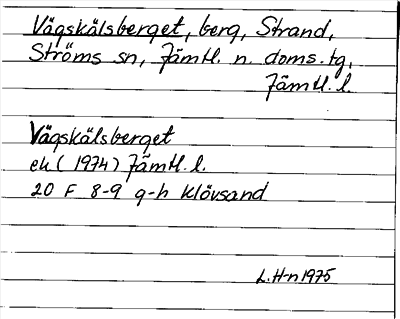 Vägskälsberget, berg, Strand,
Ströms sn, Jämtl. n. doms.tg,
Jämtl. l.
Vägskälsberget
ek (1974) Jämtl. l.
20 F 8-9 g-h Klövsand
L.H-n 1975